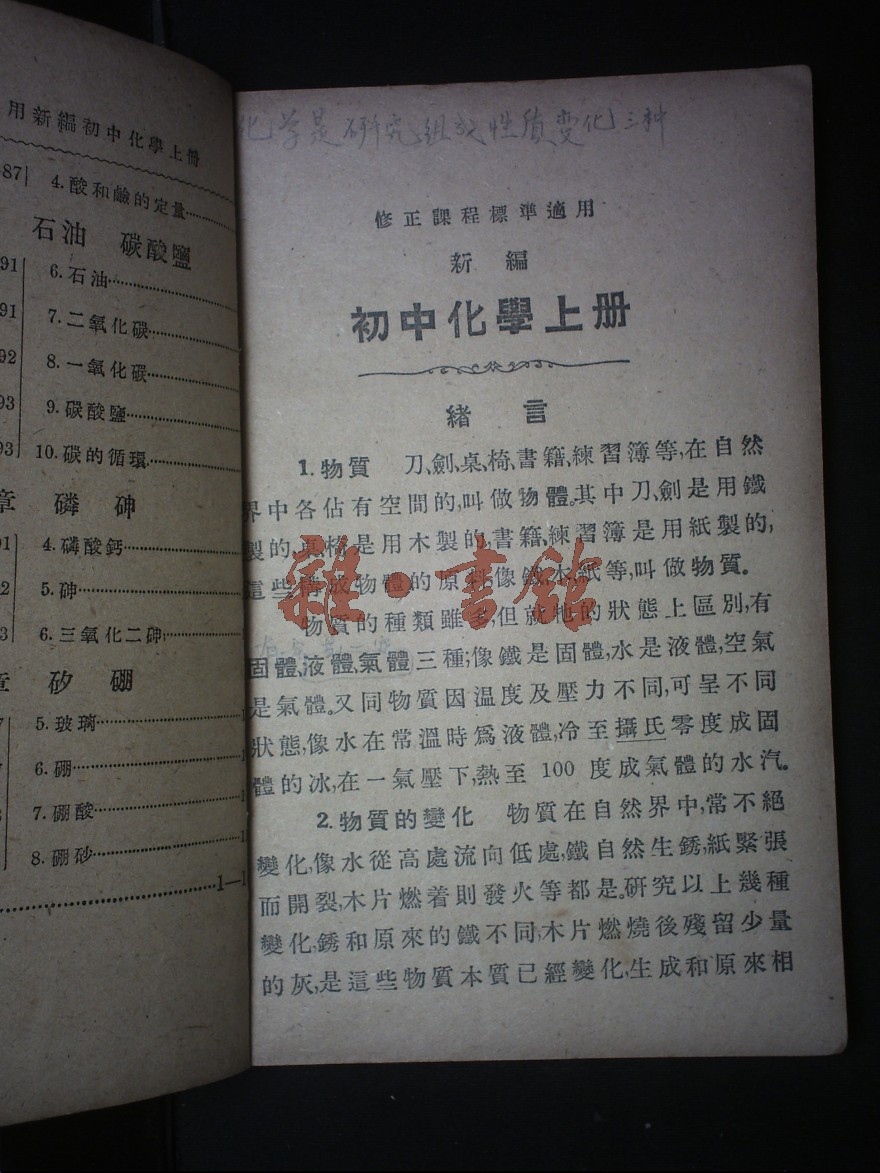 用新編初中化學上冊
87 4.酸和鹼的定量
石油 碳酸鹽
91 6.石油
91 7.二氧化碳
92 8.一氧化碳
93 9.碳酸鹽
93 10.碳的循環
章 磷 砷
91 4.磷酸鈣
92 5.砷
93 6.三氧化二砷
章 矽 硼
5.玻璃
6.硼
7.硼酸
8.硼砂
1—1
化学是研究组成性质变化三种
修正課程標準適用
新編
初中化學上册
緒言
1.物質 刀、劍、桌、椅、書籍、練習簿等,在自然
界中各佔有空間的,叫做物體。其中刀、劍是用鐵
製的,桌、椅是用木製的,書籍、練習簿是用紙製的,
這些構成物體的原料像鐵、木、紙等,叫做物質。
物質的種類雖多,但就牠的狀態上區別,有
固體、液體、氣體三種;像鐵是固體,水是液體,空氣
是氣體。又同物質因溫度及壓力不同,可呈不同
狀態,像水在常溫時爲液體,冷至攝氏零度成固
體的冰,在一氣壓下,熱至 100 度成氣體的水汽。
2.物質的變化 物質在自然界中,常不絕
變化,像水從高處流向低處,鐵自然生銹,紙緊張
而開裂,木片燃着則發火等都是。研究以上幾種
變化,銹和原來的鐵不同,木片燃燒後殘留少量
的灰,是這些物質本質已經變化,生成和原來相
雜·書館